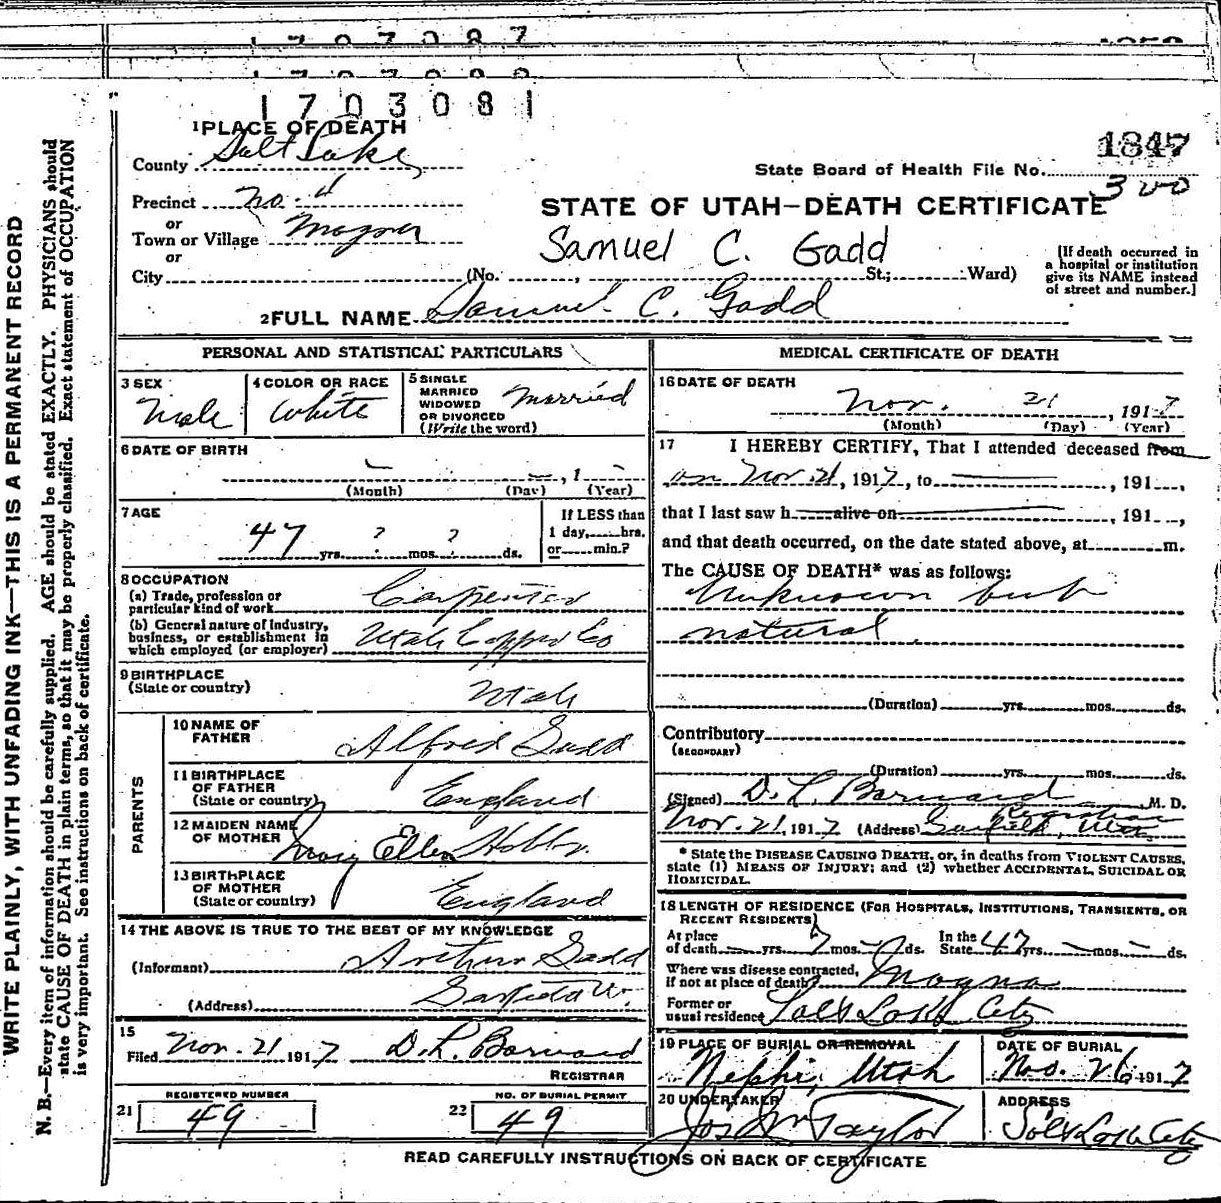 1703081
1 PLACE OF DEATH
County Salt Lake
1847
State Board of Health File No.
300
Precinct No. 4
or
Town or Village Magna
or
City (No. , St.; Ward)
STATE OF UTAH—DEATH CERTIFICATE
Samuel C. Gadd
[If death occurred in
a hospital or institution
give its NAME instead
of street and number.]
2 FULL NAME Samuel C. Gadd
PERSONAL AND STATISTICAL PARTICULARS
3 SEX
Male
4 COLOR OR RACE
White
5 SINGLE
MARRIED
WIDOWED
OR DIVORCED
(Write the word)
Married
6 DATE OF BIRTH
— — , 1 —
(Month) (Day) (Year)
7 AGE
47 yrs. ? mos. ? ds.
If LESS than
1 day, hrs.
or min.?
8 OCCUPATION
(a) Trade, profession or
particular kind of work Carpenter
(b) General nature of industry,
business, or establishment in
which employed (or employer) Utah Copper Co
9 BIRTHPLACE
(State or country) Utah
PARENTS
10 NAME OF
FATHER Alfred Gadd
11 BIRTHPLACE
OF FATHER
(State or country) England
12 MAIDEN NAME
OF MOTHER Mary Ellen
13 BIRTHPLACE
OF MOTHER
(State or country) England
14 THE ABOVE IS TRUE TO THE BEST OF MY KNOWLEDGE
(Informant) Arthur Gadd
(Address)
15
Filed Nov. 21 1917 D. L. Barnard
REGISTRAR
REGISTERED NUMBER
21 49
NO. OF BURIAL PERMIT
22 49
MEDICAL CERTIFICATE OF DEATH
16 DATE OF DEATH
Nov. 21 , 1917
(Month) (Day) (Year)
17 I HEREBY CERTIFY, That I attended deceased from
on Nov. 21, 1917, to — , 191 ,
that I last saw h alive on , 191 ,
and that death occurred, on the date stated above, at m.
The CAUSE OF DEATH* was as follows:
Unknown but
natural.
(Duration) yrs. mos. ds.
Contributory
(SECONDARY)
(Duration) yrs. mos. ds.
(Signed) D. L. Barnard M. D.
Registrar
Nov. 21, 1917 (Address) Garfield, Utah
* State the DISEASE CAUSING DEATH, or, in deaths from VIOLENT CAUSES,
state (1) MEANS OF INJURY; and (2) whether ACCIDENTAL, SUICIDAL OR
HOMICIDAL.
18 LENGTH OF RESIDENCE (FOR HOSPITALS, INSTITUTIONS, TRANSIENTS, OR
RECENT RESIDENTS)
At place
of death — yrs. 7 mos. 0 ds. In the
State 47 yrs. — mos. — ds.
Where was disease contracted,
if not at place of death? Magna
Former or
usual residence Salt Lake City
19 PLACE OF BURIAL OR REMOVAL
Nephi, Utah
DATE OF BURIAL
Nov. 26 1917
20 UNDERTAKER
Jos. Wm Taylor
ADDRESS
Salt Lake City
READ CAREFULLY INSTRUCTIONS ON BACK OF CERTIFICATE
WRITE PLAINLY, WITH UNFADING INK—THIS IS A PERMANENT RECORD
N. B.—Every item of information should be carefully supplied. AGE should be stated EXACTLY. PHYSICIANS should
state CAUSE OF DEATH in plain terms, so that it may be properly classified. Exact statement of OCCUPATION
is very important. See instructions on back of certificate.